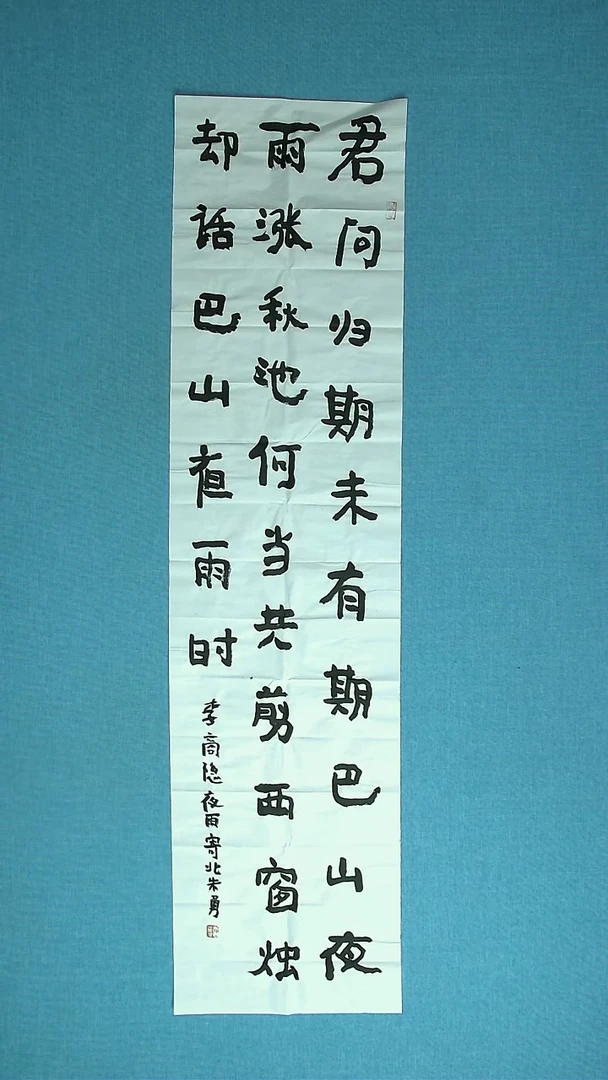 君问归期未有期巴山夜
雨涨秋池何当共剪西窗烛
却话巴山夜雨时
李商隐夜雨寄北朱勇